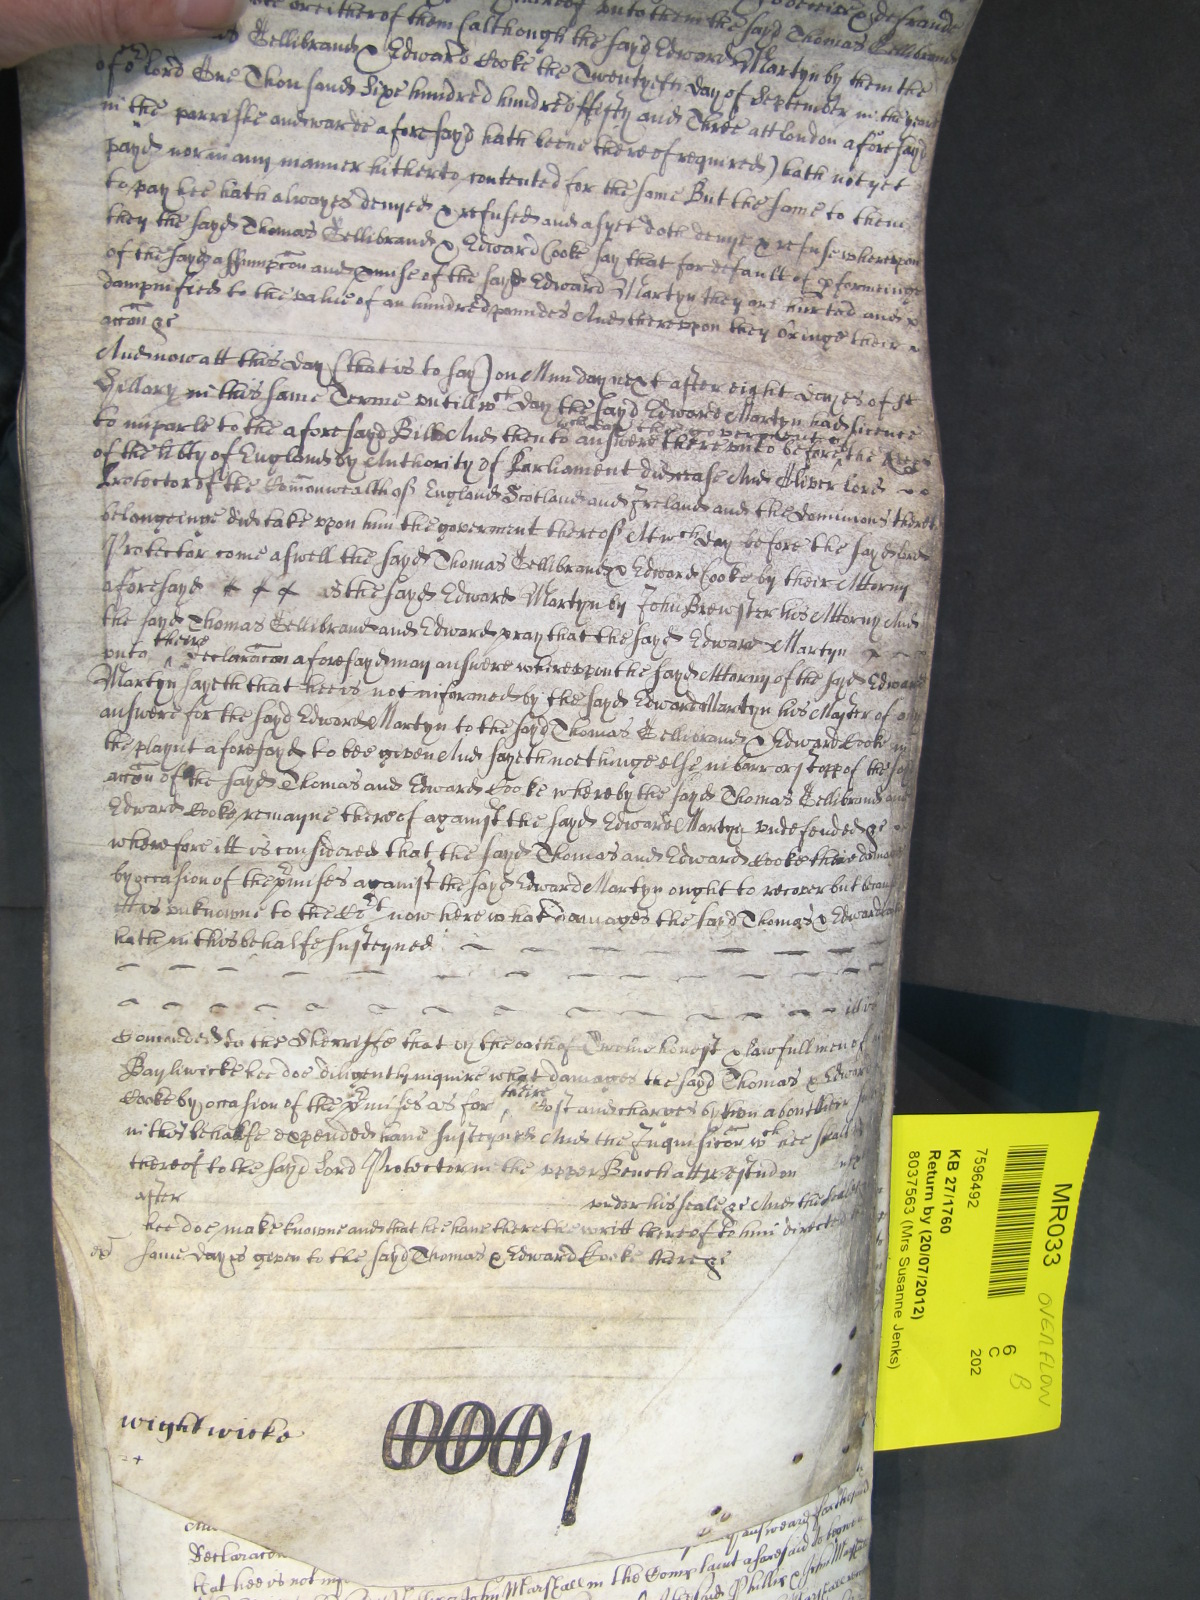 thereof unto them the sayd Thomas Gellibrand
or either of them (although the sayd Edward Martyn by them the
Gellibrand & Edward Cooke the Twentyeth day of September in the yeare
of or lord One Thousand Sixe hundred hundred ffifty and Three att london aforesayd
in the parrishe and warde aforesayd hath beene thereof required) hath not yet
payd nor in any manner hitherto contented for the same But the same to them
to pay hee hath alwayes denyed & refused and as yet doth denye & refuse whereupon
they the sayd Thomas Gellibrand & Edward Cooke say that for default of pformeinge
of the sayd assumpcon and pmise of the sayd Edward Martyn they are hurted and
dampnified to the value of an hundred pounds And thereupon they bringe their
accon &c
And now att this day (that is to say) on Munday next after eight dayes of St
Hillary in this same Terme untill wch day the sayd Edward Martyn had licence
to imparle to the aforesayd Bill And then to answere there unto before the Keeps
wch day the government
of the libty of England by Authority of Parliament did cease And Oliver Lord
Protector of the Comonwealth of England Scotland and Ireland and the dominions thereto
belongeinge did take upon him the goverment thereof Att wch day before the sayd lord
Protector come aswell the sayd Thomas Gellibrand & Edward Cooke by their Attorny
aforesayd as the sayd Edward Martyn by John Brewster his Attorny And
the sayd Thomas Gellibrand and Edward pray that the sayd Edward Martyn
unto theire declaracon aforesayd may answere whereupon the sayd Attorny of the sayd Edward
Martyn sayeth that hee is not informed by the sayd Edward Martyn his Master of any
answere for the sayd Edward Martyn to the sayd Thomas Gellibrand & Edward Cooke in
the playnt aforesayd to bee given And sayeth nothinge else in barr or stopp of the sayd
accon of the sayd Thomas and Edward Cooke whereby the sayd Thomas Gellibrand and
Edward Cooke remayne thereof against the sayd Edward Martyn undefended &c
wherefore itt is considered that the sayd Thomas and Edward Cooke theire damages
by occasion of the pmises against the sayd Edward Martyn ought to recover but because
itt is unknowne to the Cort now here what damages the sayd Thomas & Edward Cooke
hath in this behalfe susteyned
itt is
Comanded to the Sherriffe that by the oath of Twelve honest & lawfull men of
Bayliwicke hee doe diligently inquire what damages the sayd Thomas & Edward
Cooke by occasion of the pmises as for theire Cost and charges by them about their suit
in this behalfe expended have susteyned And the Inquisicon wch hee shall
thereof to the sayd Lord Protector in the upper Bench att westm on next
after under his seale &c And the seales
hee doe make knowne and that hee have there the writt thereof to him directed
same day is given to the sayd Thomas & Edward Cooke there &c
wightwicke
And
declaracon answeard
that hee is not
John Marshall in the Complaint aforesaid to bee
MR033
7596492
KB 27/1760
Return by (20/07/2012)
8037563 (Mrs Susanne Jenks)
6
C
202
OVERFLOW
B